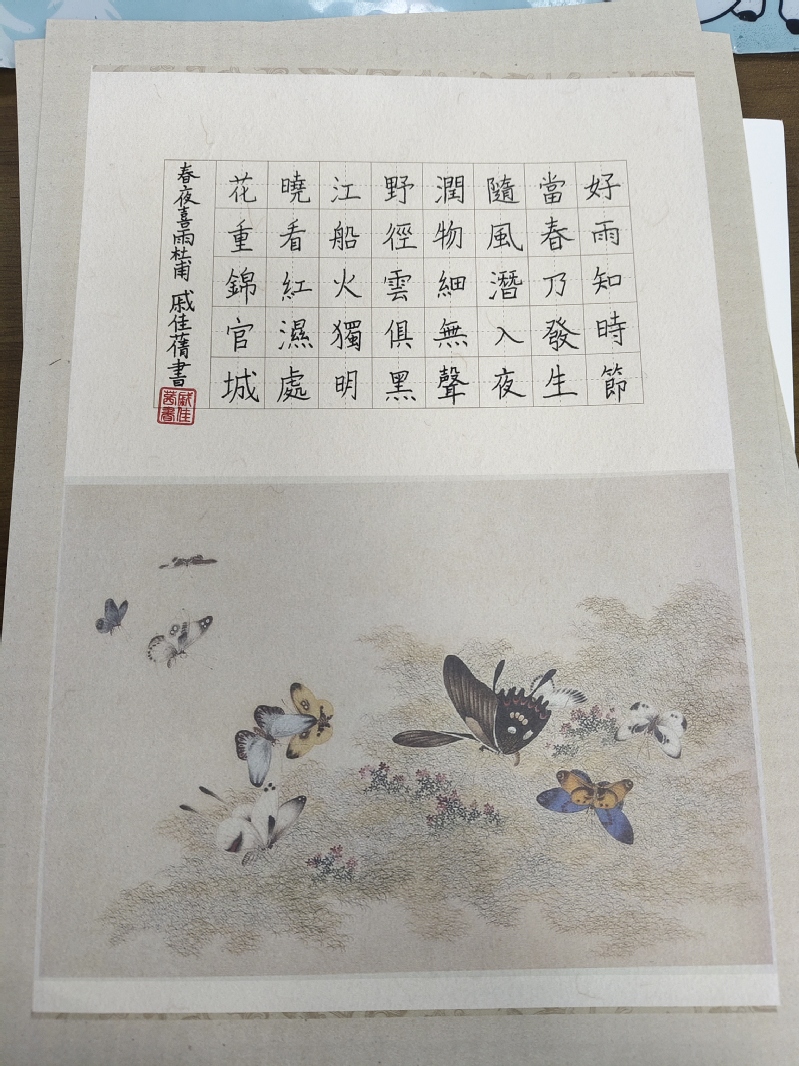 好雨知時節
當春乃發生
隨風潛入夜
潤物細無聲
野徑雲俱黑
江船火獨明
曉看紅濕處
花重錦官城
春夜喜雨杜甫 戚佳蒨書